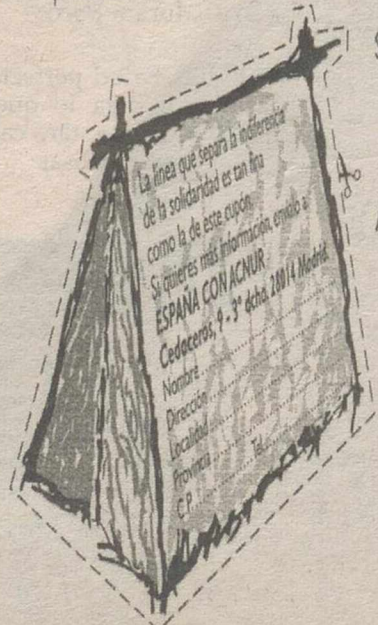 La línea que separa la indiferencia
de la solidaridad es tan fina
como la de este cupón.
Si quieres más información, envíalo a:
ESPAÑA CON ACNUR
Cedaceros, 9 - 3º dcha. 28014 Madrid.
Nombre
Dirección
Localidad
Provincia
Tel.
C.P.